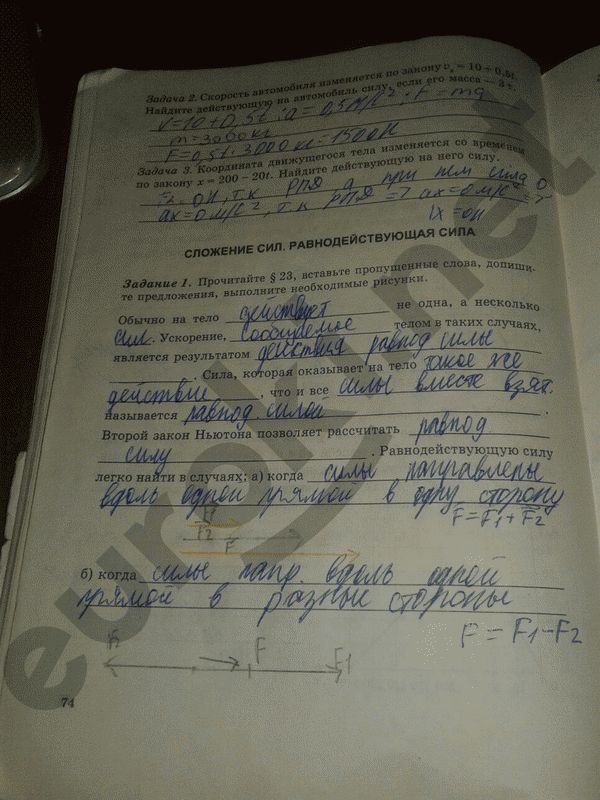 Задача 2. Скорость автомобиля изменяется по закону vₓ = 10 + 0,5t.
Найдите действующую на автомобиль силу, если его масса — 3 т.
V=10+0,5t; a = 0,5 м/с²; F = ma
m=3000 кг
F=0,5t·3000 кг=1500Н
Задача 3. Координата движущегося тела изменяется со временем
по закону x = 200 – 20t. Найдите действующую на него силу.
0Н, т.к РПД а при нем сила 0
ax=0м/с², т.к РПД => ax=0м/с² =>
=0н
СЛОЖЕНИЕ СИЛ. РАВНОДЕЙСТВУЮЩАЯ СИЛА
Задание 1. Прочитайте § 23, вставьте пропущенные слова, допиши-
те предложения, выполните необходимые рисунки.
Обычно на тело действует не одна, а несколько
сил. Ускорение, сообщаемое телом в таких случаях,
является результатом действия равнод силы
. Сила, которая оказывает на тело такое же
действие, что и все силы вместе взят.
называется равнод. силой.
Второй закон Ньютона позволяет рассчитать равнод.
силу. Равнодействующую силу
легко найти в случаях: а) когда силы направлены
вдоль одной прямой в одну сторону
F=F1+F2
F2
F
б) когда силы напр. вдоль одной
прямой в разные стороны
F = F1-F2
F2 F F1
74
euroki.net